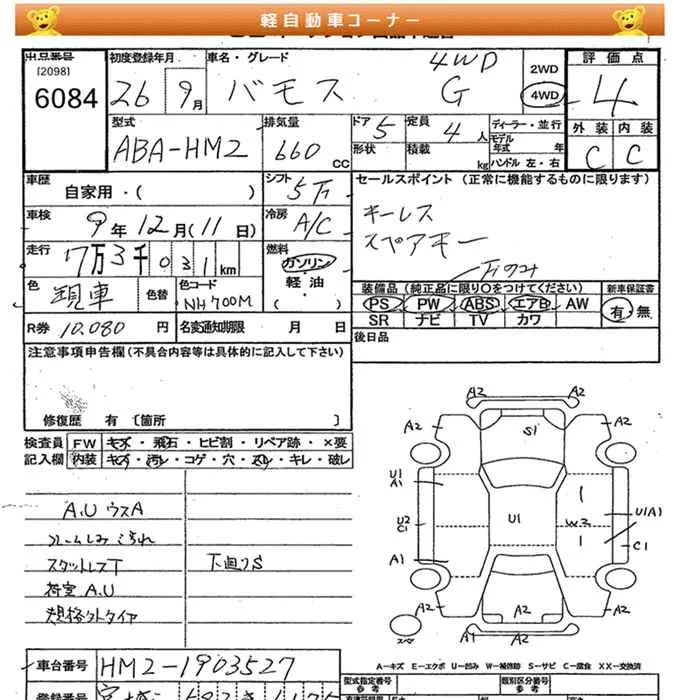 軽自動車コーナー
出品番号 初度登録年月 車名・グレード 評価点
[2098]
6084
26 9月 バモス 4WD G 2WD 4WD 4
型式 排気量 ドア 5 定員 4人 ディーラー・並行 外装 内装
ABA-HM2 660 CC 形状 積載 kg モデル年式 年 ハンドル 左・右 C C
車歴 自家用・( ) シフト 5下 セールスポイント(正常に機能するものに限ります)
車検 9年12月(11日) 冷房 A/C キーレス
スペアキー
走行 7万3千031km 燃料 ガソリン・軽油・( )
色 現車 色替 色コード NH700M
装備品(純正品に限り○をつけてください) 新車保証書
PS PW ABS エアB AW 有・無
SR ナビ TV カワ
R券 10.080円 名変通知期限 月 日 後日品
注意事項申告欄(不具合内容等は具体的に記入して下さい)
修復歴 有〔箇所 〕
検査員 FW キズ・飛石・ヒビ割・リペア跡・×要
記入欄 内装 キズ・汚レ・コゲ・穴・スレ・キレ・破レ
A2 A2
A2 S1 A2
U1
A1
A.U ウスA
U2
C1
U1 W2 U1A1
C1
A1
スタットレスT 下廻りS
荷室 A.U
規格外タイヤ
A2 A2 A2
A1 A2
A－キズ E－エクボ U－凹み W－補修跡 S－サビ C－腐食 XX－交換済
車台番号 HM2-1903527
型式指定番号 類別区分番号
参考 参考
登録番号 宮城